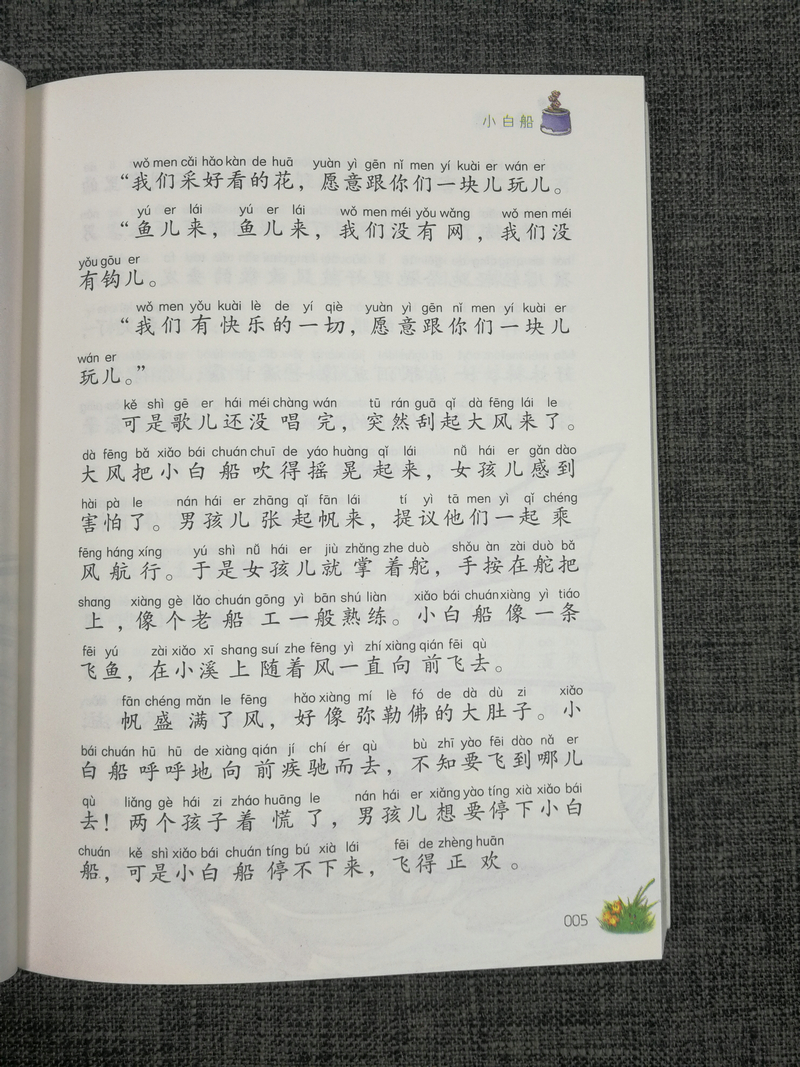 小白船
wǒ men cǎi hǎo kàn de huā yuàn yì gēn nǐ men yí kuài er wán er
“我们采好看的花，愿意跟你们一块儿玩儿。
yú er lái yú er lái wǒ men méi yǒu wǎng wǒ men méi
“鱼儿来，鱼儿来，我们没有网，我们没
yǒu gōu er
有钩儿。
wǒ men yǒu kuài lè de yí qiè yuàn yì gēn nǐ men yí kuài er
“我们有快乐的一切，愿意跟你们一块儿
wán er
玩儿。”
kě shì gē er hái méi chàng wán tū rán guā qǐ dà fēng lái le
可是歌儿还没唱完，突然刮起大风来了。
dà fēng bǎ xiǎo bái chuán chuī de yáo huàng qǐ lái nǚ hái er gǎn dào
大风把小白船吹得摇晃起来，女孩儿感到
hài pà le nán hái er zhāng qǐ fān lái tí yì tā men yì qǐ chéng
害怕了。男孩儿张起帆来，提议他们一起乘
fēng háng xíng yú shì nǚ hái er jiù zhǎng zhe duò shǒu àn zài duò bǎ
风航行。于是女孩儿就掌着舵，手按在舵把
shang xiàng gè lǎo chuán gōng yì bān shú liàn xiǎo bái chuán xiàng yì tiáo
上，像个老船工一般熟练。小白船像一条
fēi yú zài xiǎo xī shang suí zhe fēng yì zhí xiàng qián fēi qù
飞鱼，在小溪上随着风一直向前飞去。
fān chéng mǎn le fēng hǎo xiàng mí lè fó de dà dù zi xiǎo
帆盛满了风，好像弥勒佛的大肚子。小
bái chuán hū hū de xiàng qián jí chí ér qù bù zhī yào fēi dào nǎ er
白船呼呼地向前疾驰而去，不知要飞到哪儿
qù liǎng gè hái zi zháo huāng le nán hái er xiǎng yào tíng xià xiǎo bái
去！两个孩子着慌了，男孩儿想要停下小白
chuán kě shì xiǎo bái chuán tíng bú xià lái fēi de zhèng huān
船，可是小白船停不下来，飞得正欢。
005